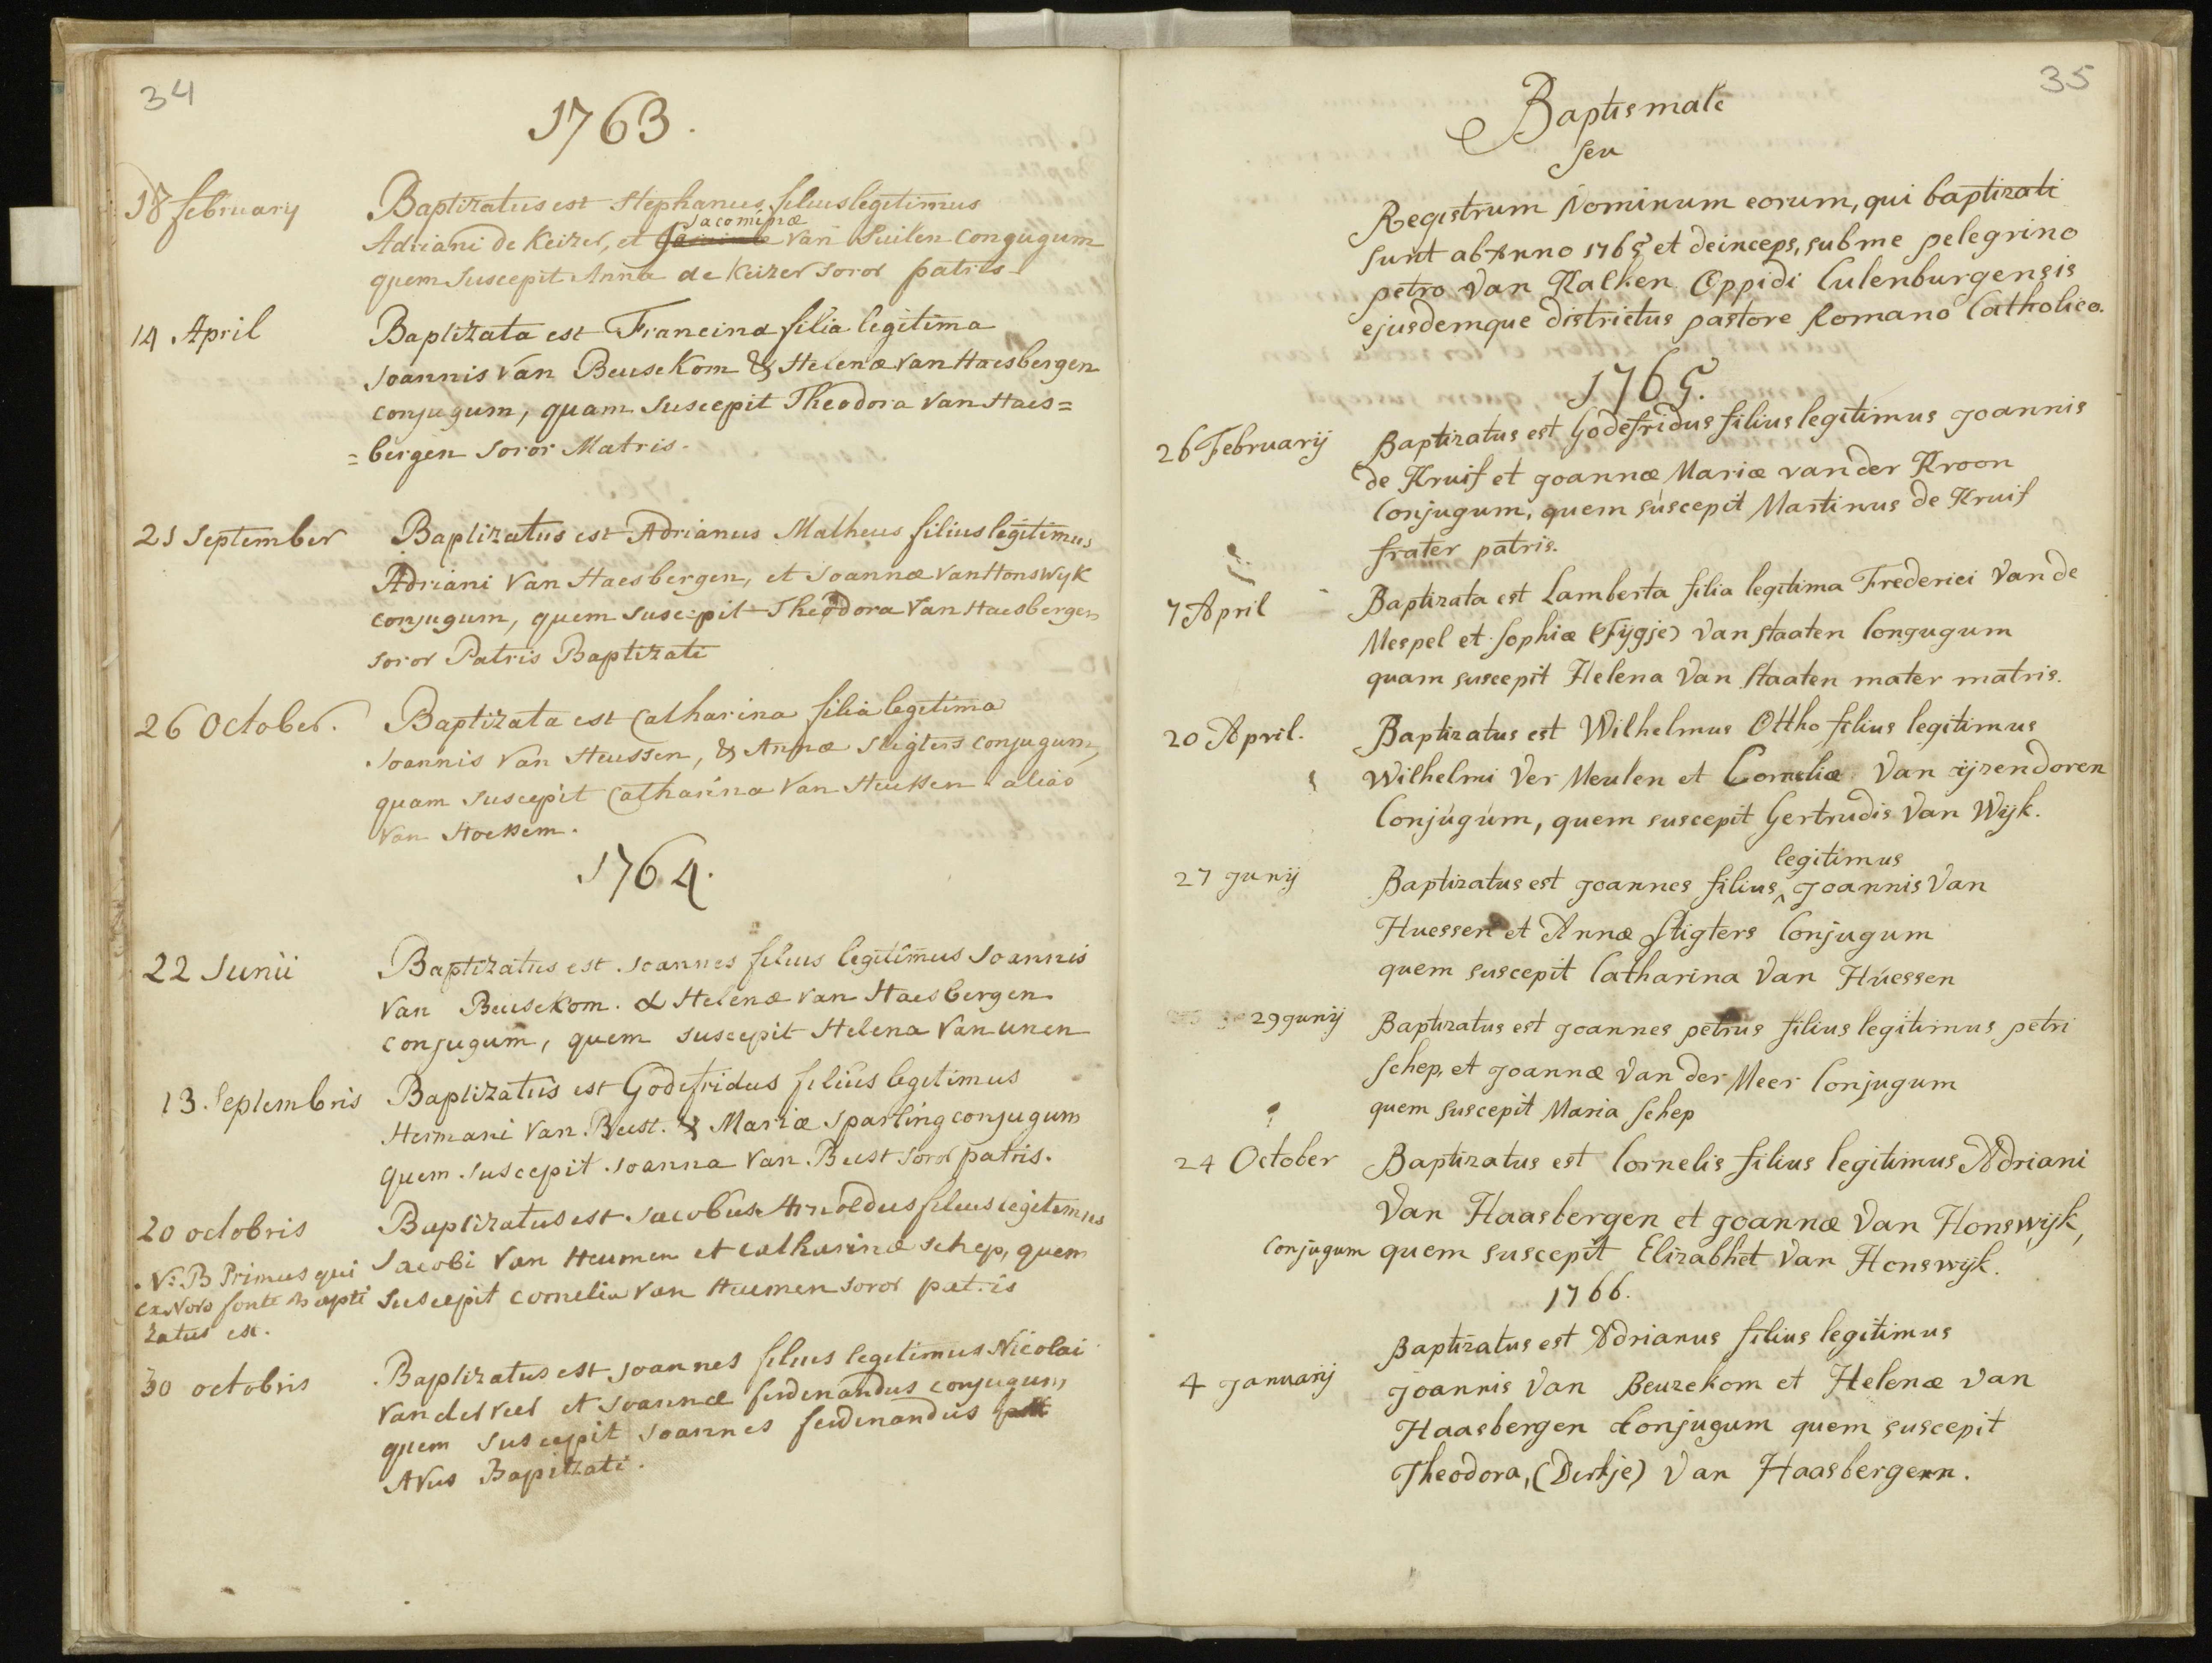 34
1763.
18 february Baptizatus est Stephanus filius legitimus
Jacominæ
Adriani de Keizer, et van Suilen congugum
quem suscepit Anna de Keizer soror patris
14 April Baptizata est Francina filia legitima
Joannis van Beusekom & Helenæ van Haesbergen
conjugum, quam suscepit Theodora van Haes=
=bergen soror Matris.
21 September Baptizatus est Adrianus Matheus filius legitimus
Adriani van Haesbergen, et Joannæ van Honswyk
conjugum, quem suscepit Theodora van Haesbergen
soror Patris Baptizati
26 October. Baptizata est Catharina filia legitima
Joannis van Heussen, & Annæ Stigters conjugum,
quam suscepit Catharina van Heussen alias
van Hoessem.
1764.
22 Junii Baptizatus est Joannes filius legitimus Joannis
van Beusekom. & Helenæ van Haesbergen
conjugum, quem suscepit Helena van unen
13. Septembris Baptizatus est Godefridus filius legitimus
Hermani van Beest. & Mariæ Sparling conjugum
quem suscepit Joanna van Beest soror patris.
20 octobris Baptizatus est Jacobus Arnoldus filius legitimus
Jacobi van Heumen et catharinæ schep, quem
suscepit cornelia van Heumen soror patris
N: B Primus qui
ex Novo fonte Bapti
zatus est.
30 octobris Baptizatus est Joannes filius legitimus Nicolai
van der veer et Joannæ ferdenandus conjugum
quem suscepit Joannes ferdenandus
Avus Bapitzati.
35
Baptismale
seu
Registrum Nominum eorum, qui baptizati
sunt ab Anno 1765 et deinceps, sub me pelegrino
petro van Kalken Oppidi Culenburgensis
ejusdemque districtus pastore Romano Catholico.
1765.
26 Februarij Baptizatus est Godefridus filius legitimus Joannis
de Kruif et Joannæ Mariæ vander Kroon
Conjugum, quem suscepit Martinus de Kruif
frater patris.
7 April Baptizata est Lamberta filia legitima Frederici van de
Mespel et Sophiæ (Fijgje) van Staaten Congugum
quam suscepit Helena van Staaten mater matris.
20 April. Baptizatus est Wilhelmus Ottho filius legitimus
Wilhelmi Ver Meulen et Corneliæ van ijzendoren
Conjúgúm, quem suscepit Gertrudis van Wijk.
legitimus
27 Junij Baptizatus est Joannes filius ^ Joannis van
Huessen et Annæ Stigters Conjugum
quem suscepit Catharina van Húessen
29 Junij Baptizatus est Joannes petrus filius legitimus petri
Schep, et Joannæ van der Meer Conjugum
quem suscepit Maria Schep
24 October Baptizatus est Cornelis filius legitimus Adriani
van Haasbergen et Joannæ van Honswijk,
Conjugum quem suscepit Elizabhet van Honswijk.
1766.
Baptizatus est Adrianus filius legitimus
4 Januarij Joannis van Beuzekom et Helenæ van
Haasbergen Conjugum quem suscepit
Theodora, (Dirkje) van Haasbergenn.